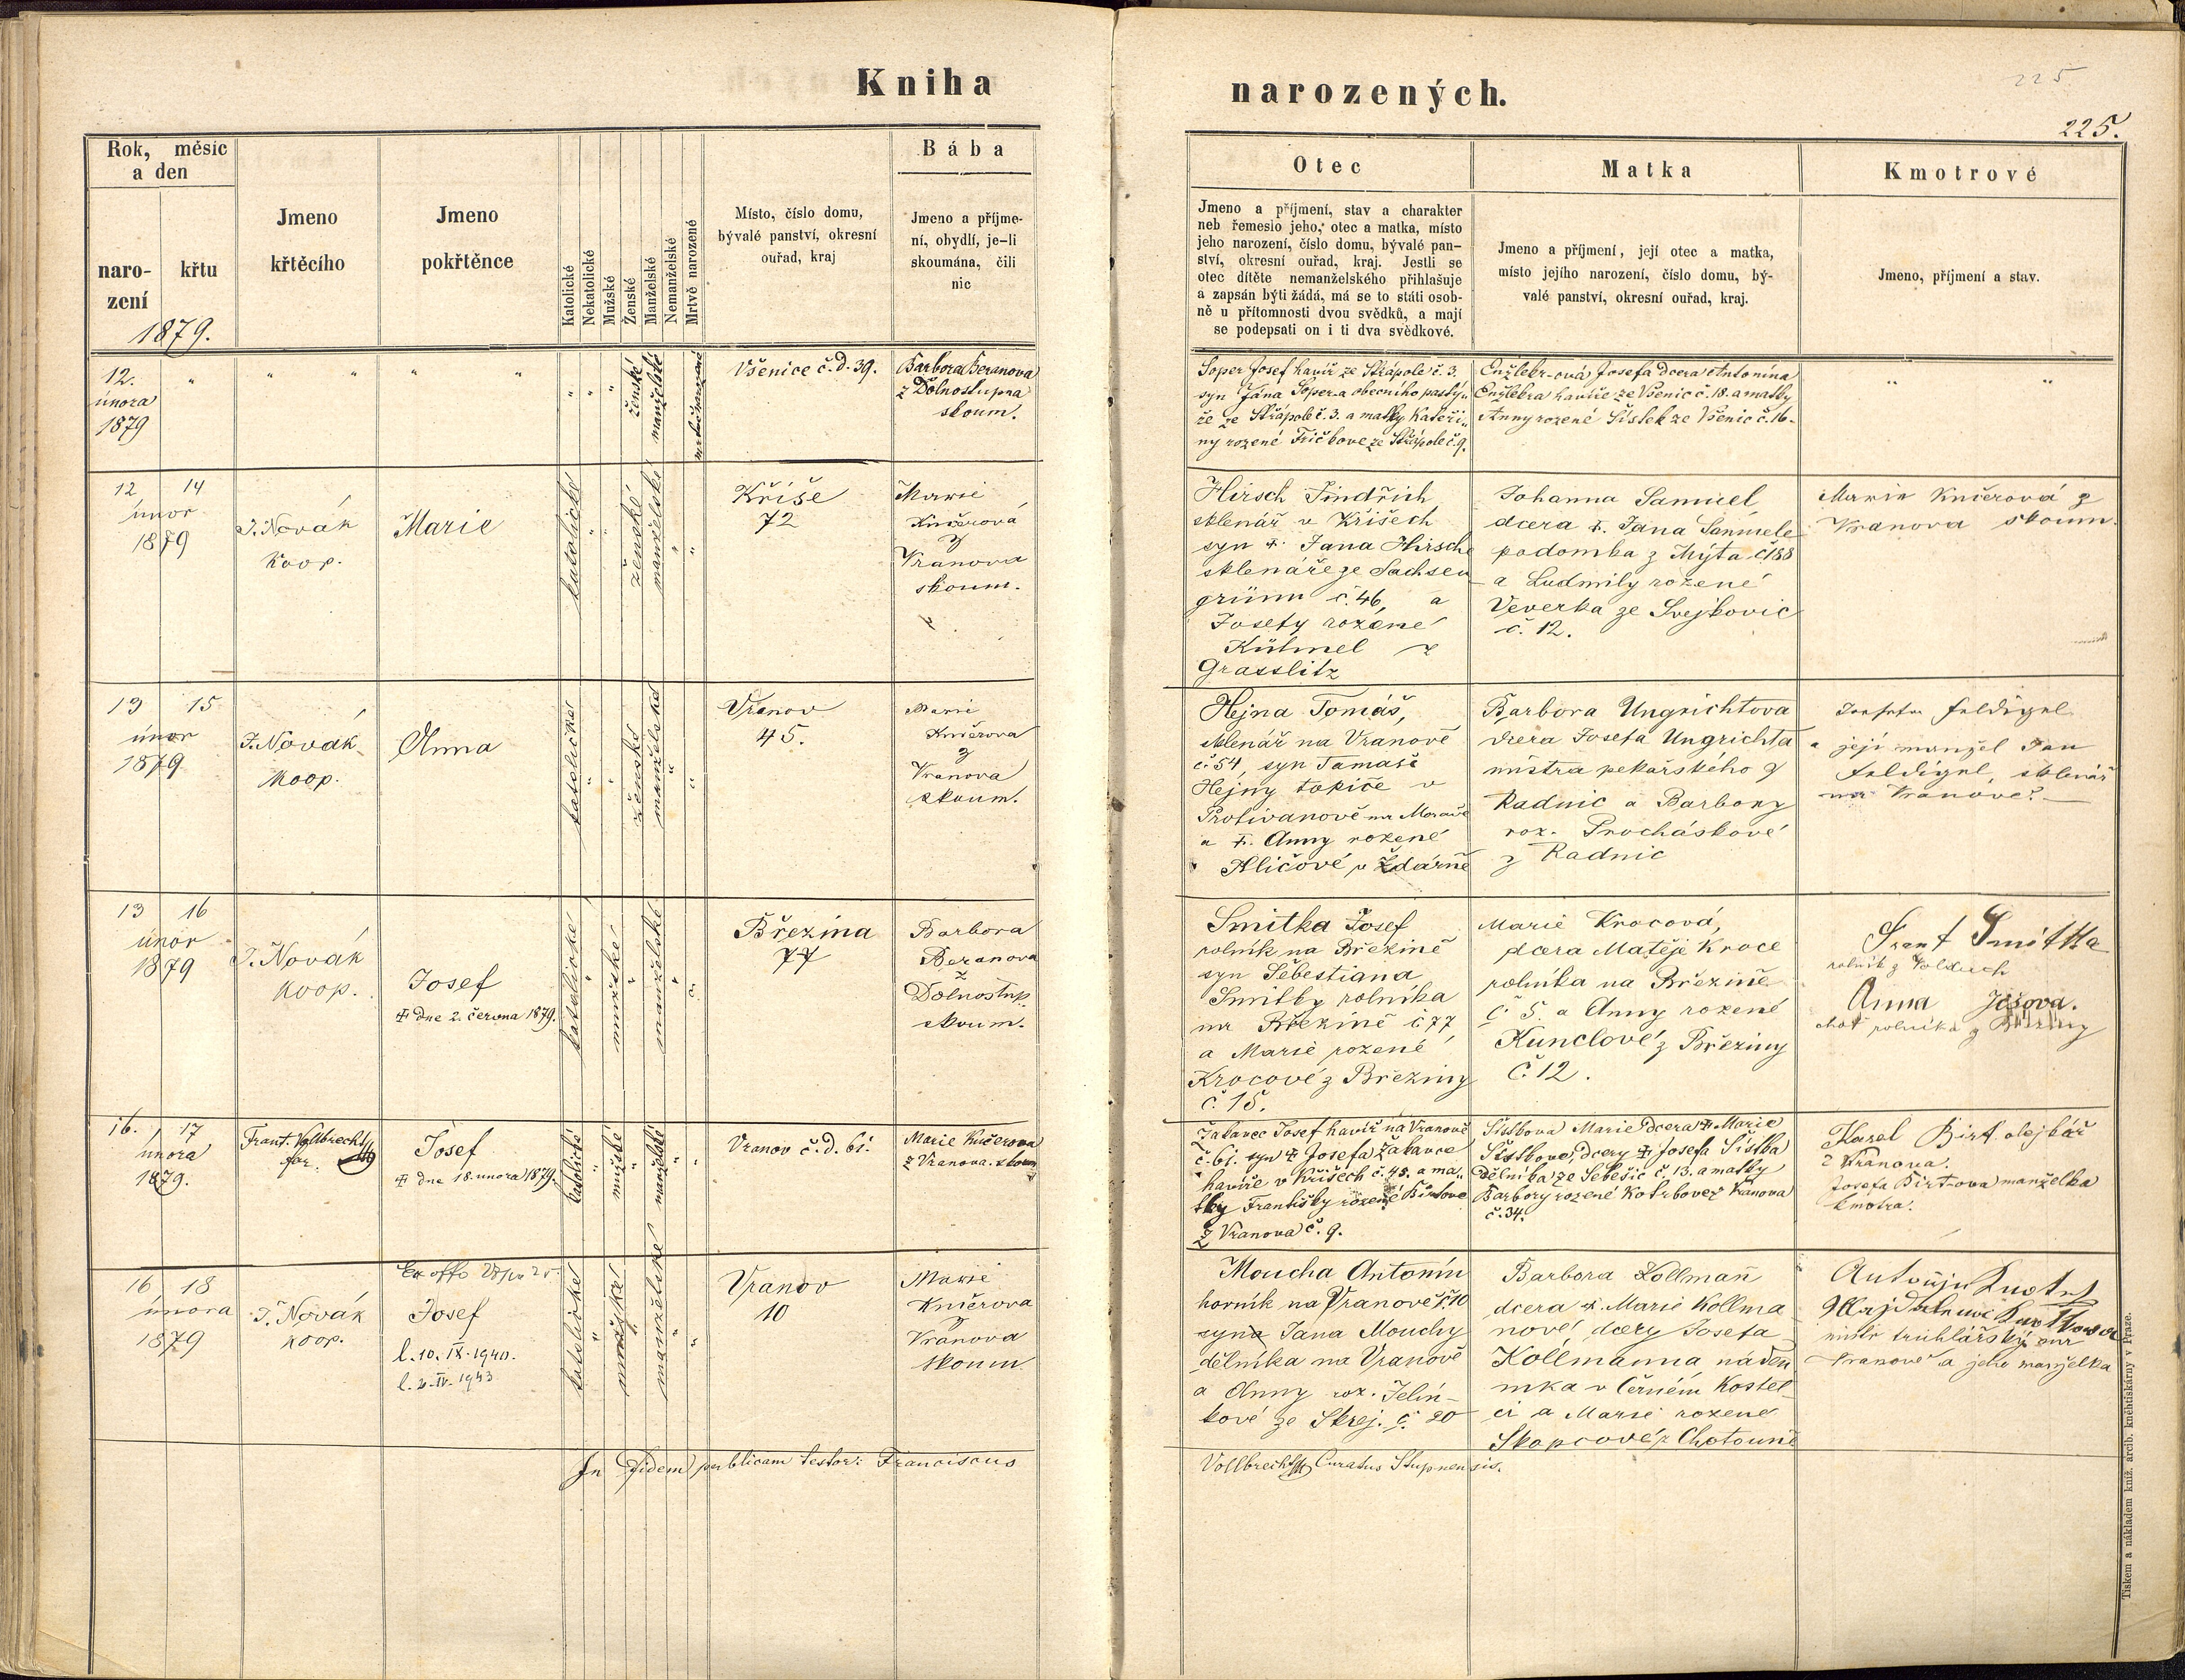 Kniha
narozených.
225
225.
Rok, měsíc
a den
naro-
zení
křtu
1879.
Jmeno
křtěcího
Jmeno
pokřtěnce
Katolické
Nekatolické
Mužské
Ženské
Manželské
Nemanželské
Mrtvě narozené
Místo, číslo domu,
bývalé panství, okresní
ouřad, kraj
Bába
Jmeno a příjme-
ní, obydlí, je-li
skoumána, čili
nic
Otec
Jmeno a příjmení, stav a charakter
neb řemeslo jeho, otec a matka, místo
jeho narození, číslo domu, bývalé pan-
ství, okresní ouřad, kraj. Jestli se
otec dítěte nemanželského přihlašuje
a zapsán býti žádá, má se to státi osob-
ně u přítomnosti dvou svědků, a mají
se podepsati on i ti dva svědkové.
Matka
Jmeno a příjmení, její otec a matka,
místo jejího narození, číslo domu, bý-
valé panství, okresní ouřad, kraj.
Kmotrové
Jmeno, příjmení a stav.
12.
února
1879
" " " " "
" " "
ženské
manželské
mrtvě narozené
Všenice č.d. 39.
Barbora Beranova
z Dolnostupna
skoum.
Soper Josef havíř ze Střápole č. 3.
syn Jana Sopera obecního pastý-
ře ze Střápole č. 3. a matky Kateři-
ny rozené Fričkove ze Střápole č. 9.
Enžlebr-ová Josefa dcera Antonína
Enžlebra havíře ze Všenic č. 18. a matky
Anny rozené Šistek ze Všenic č. 16-
" "
12 14
únor
1879
J. Novák
Koop.
Marie
katolické
ženské
manželské
Kříše
72
Marie
Kučerová
z
Vranova
skoum.
Hirsch Jindřich
sklenář v Kříšech
syn ✝ Jana Hirsche
sklenáře ze Sachsen
grünn č. 46, a
Josefy rozené
Kühnel z
Grasslitz
Johanna Samuel
dcera ✝. Jana Samuele
podomka z Mýta č 188
a Ludmily rožené
Veverka ze Svejkovic
č. 12.
Marie Kučerová z
Vranova skoum.
13 15
únor
1879
J. Novák
Koop.
Anna
katolické
ženské
manželské
Vranov
45.
Marie
Kučerova
z
Vranova
skoum.
Hejna Tomáš,
sklenář na Vranově
č. 54, syn Tomáše
Hejny topiče v
Protivanově na Moravě
a ✝. Anny rozené
Hličové v Ždárně
Barbora Ungrichtova
dcera Josefa Ungrichta
mistra pekařského z
Radnic a Barbory
roz. Procháskové
z Radnic
Josefa Feldigel
a její manžel Jan
Feldigel, sklenář
na Vranově.
13 16
únor
1879
J. Novák
Koop.
Josef
✝ dne 2. června 1879.
katolické
mužské
manželské
Březina
77
Barbora
Beranova
z
Dolnostup.
skoum.
Smitka Josef
rolník na Březině
syn Šebestiana
Smitky rolníka
na Březině č 77
a Marie rozené
Krocové z Březiny
č. 15.
Marie Krocová,
dcera Matěje Kroce
rolníka na Březině
č. 5. a Anny rozené
Kunclové z Březiny
č. 12.
Frant Smitka
rolník z Volduch
Anna Ješova.
choť rolníka z Březiny
16. 17
února
1879.
Frant. Vollbrecht
far.
Josef
✝ dne 18. unora 1879.
katolické
mužské
manželské
Vranov č.d. 61.
Marie Kučerova
z Vranova. skoum
Žakavec Josef havíř na Vranově
č. 61. syn ✝ Josefa Žakavce
havíře v Kříšech č. 45. a ma-
tky Františky rozené Birtove
z Vranova č. 9.
Šistkova Marie dcera ✝ Marie
Šistkove, dcery ✝ Josefa Šistka
dělníka ze Sebešic č. 13. a matky
Barbory rozené Kotrbove z Vranova
č. 34.
Karel Birt olejkář
z Vranova.
Josefa Birt-ova manželka
kmotra.
16 18
února
1879
J. Novák
koop.
Ex offo
Josef
l. 10. IX. 1940.
l. 2. IV. 1943
katolické
mužské
manželské
Vranov
10
Marie
Kučerova
z
Vranova
skoum
Moucha Antonín
horník na Vranově č. 10
syna Jana Mouchy
dělníka na Vranově
a Anny roz. Jelín-
kové ze Skrej. č. 20
Barbora Kollmann
dcera ✝. Marie Kollma
nové, dcery Josefa
Kollmanna náden
níka v Černém Kostel
ci a Marie rozené
Skopcové z Chotouně
mistr truhlářský na
Vranově a jeho manželka
In fidem publicam testor: Franciscus
Vollbrecht Curatus Stupnensis.
Tiskem a nákladem kníž. arcib. kněhtiskárny v Praze.